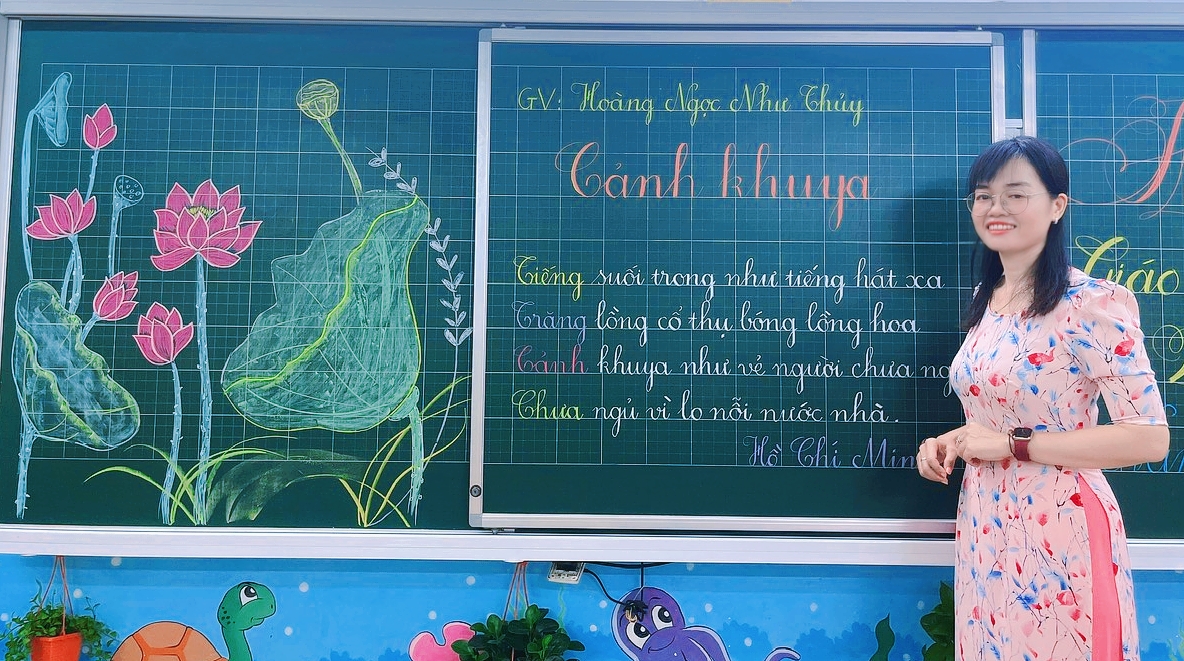 GV: Hoàng Ngọc Như Thủy
Cảnh khuya
Tiếng suối trong như tiếng hát xa
Trăng lồng cổ thụ, bóng lồng hoa
Cảnh khuya như vẻ người chưa ng
Chưa ngủ vì lo nỗi nước nhà.
Hồ Chí Min
Giáo